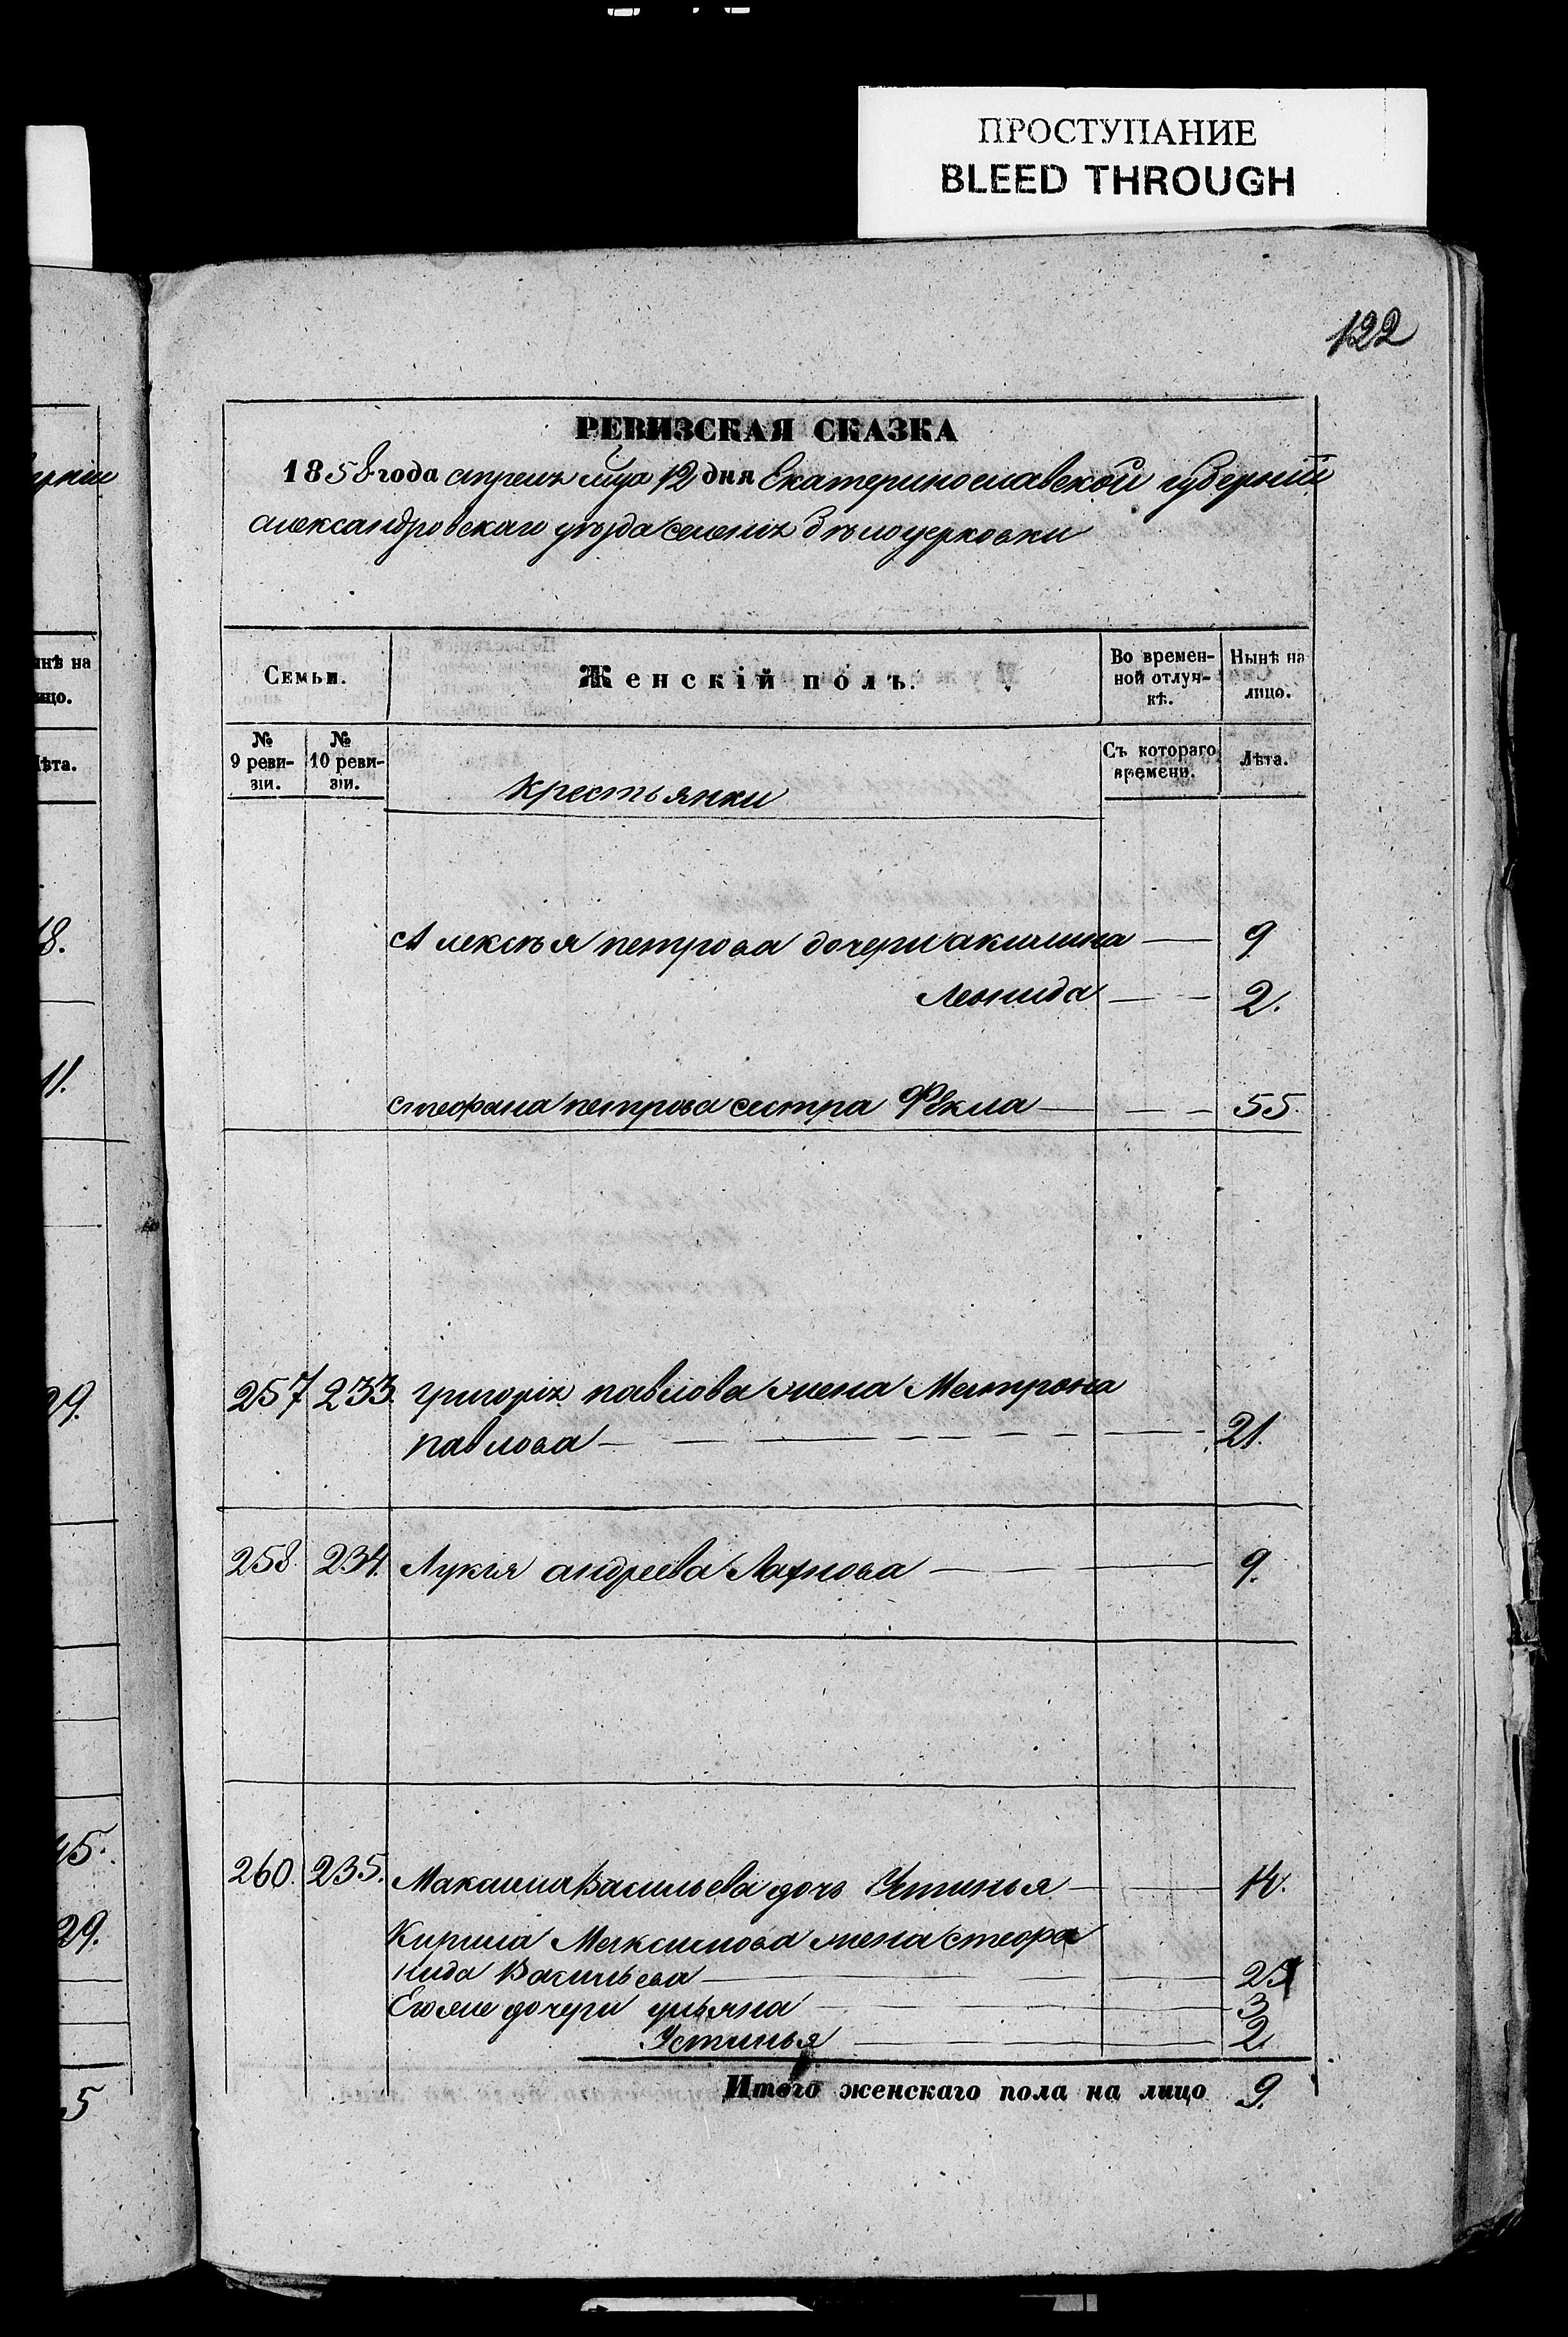 ПРОСТУПАНИЕ
BLEED THROUGH
122
РЕВИЗСКАЯ СКАЗКА
1858 года апреля мца 12 дня Екатеринославской губернiи
александровскаго уѣзда селенiя Бѣлоцерковки
Семьи.
Женскій полъ.
Во времен-
ной отлуч-
кѣ.
Нынѣ на
лицо.
№
9 реви-
зіи.
№
10 реви-
зіи.
Съ котораго
времени.
Лѣта.
крестьянки
Алексѣя петрова дочери акилина 9
Леонида 2.
стефана петрова сестра Фѣкла 55.
257 233. григорiя павлова жена Матрона
павлова 21.
258. 234. Лукiя андреева Лахнова 9.
260. 235. Максима Васильева дочь Устинья 14.
Кирила Максимова жена стефа
нида Васильева 25
Егожне дочери ульяна 3
Устинья 2
Итого женскаго пола на лицо 9.
18.
11.
29.
45.
29.
5